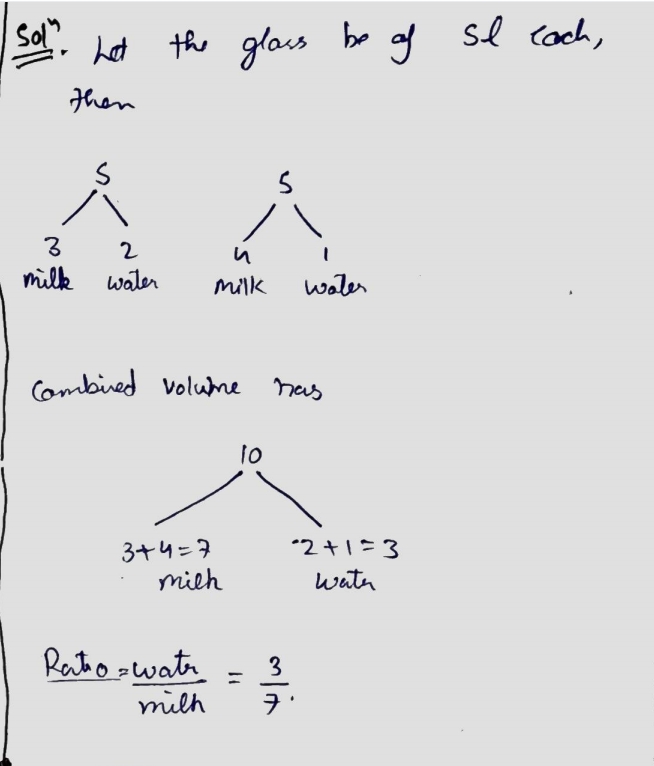 Solⁿ. Let the glass be of 5l each,
then
5 5
3 2 4 1
milk water milk water
Combined volume has
10
3+4=7 2+1=3
milk water
Ratio = water / milk = 3 / 7.